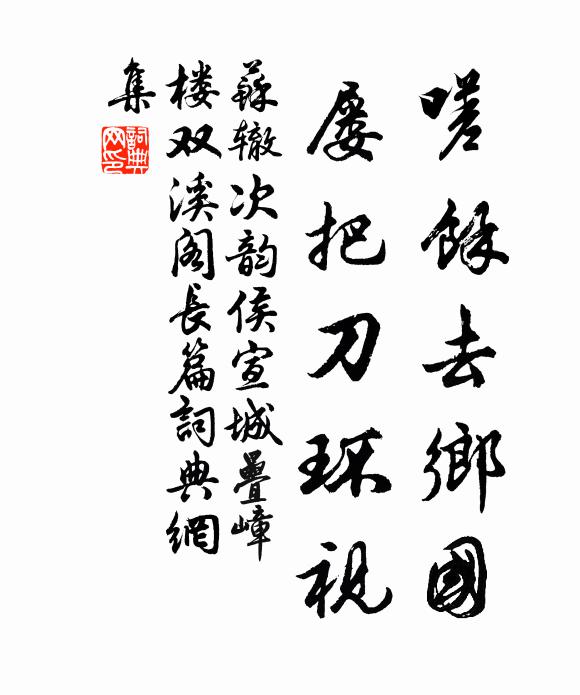 嗟餘去鄉國
屡把刀环視
蘇辙次韵侯宣城疊嶂
楼双溪阁長篇詞典網
集
詞典网印